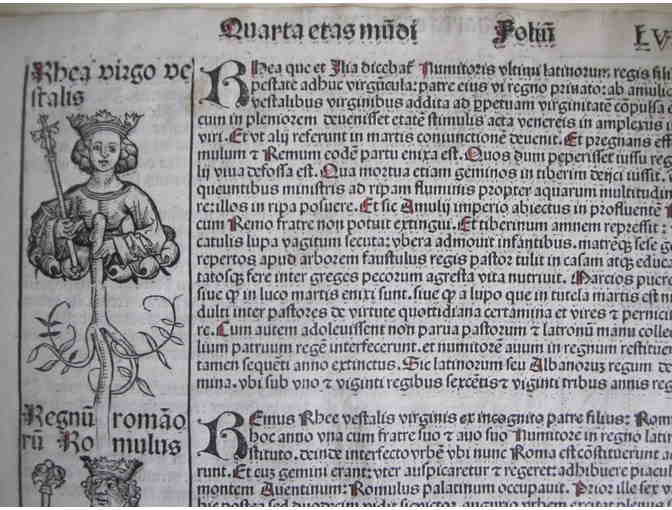 Quarta etas mūdi Foliū LV
Rhea virgo ve
stalis
Rhea que et Ilia dicebat̄ Numitoris vltimi latinorum regis fili
pestate adhuc virgūcula: patre eius vi regno priuato: ab amulio
vestalibus virginibus addita ad ꝑpetuam virginitatē cōpulsa
cum in pleniorem deuenisset etatē stimulis acta venereis in amplexus
viri. Et vt alij referunt in martis coniunctionē deuenit. Et pregnans
mulum ⁊ Remum eodē partu enixa est. Quos dum peperisset iussu reg
lij viua defossa est. Qua mortua etiam geminos in tiberim deijci iussit.
queuntibus ministris ad ripam fluminis propter aquarum multitudi
re: illos in ripa posuere. Et sic Amulij imperio abiectus in profluentē
cum Remo fratre non potuit extingui. Et tiberinum amnem repressit:
catulis lupa vagitum secuta: vbera admouit infantibus. matrēqꝫ sese
repertos apud arborem faustulus regis pastor tulit in casam atqꝫ educa
tatosqꝫ fere inter greges pecorum agresta vita nutriuit. Marcios puer
siue ꝙ in luco martis enixi sunt. siue ꝙ a lupo que in tutela martis est
dulti inter pastores de virtute quottidiana certamina et vires ⁊ pernici
re. Cum autem adoleuissent non parua pastorum ⁊ latronū manu colle
lium patruum regē interfecerunt. et numitorē auum in regnum restitue
tamen sequēti anno extinctus. Sic latinorum seu Albanoruꝫ regum de
mina. vbi sub vno ⁊ viginti regibus sexcētis ⁊ viginti tribus annis reg
Regnū romāo
rū Romulus
Remus Rhee vestalis virginis ex incognito patre filius: Rom
hoc anno vna cum fratre suo ⁊ auo suo Numitore in regno lati
stituto. deinde interfecto vrbē vbi nunc Roma est cōstituerunt
runt. Et cuꝫ gemini erant: vter auspicaretur ⁊ regeret: adhibuere
montem Auentinum: Romulus palatinum occupauit. Prior ille sex